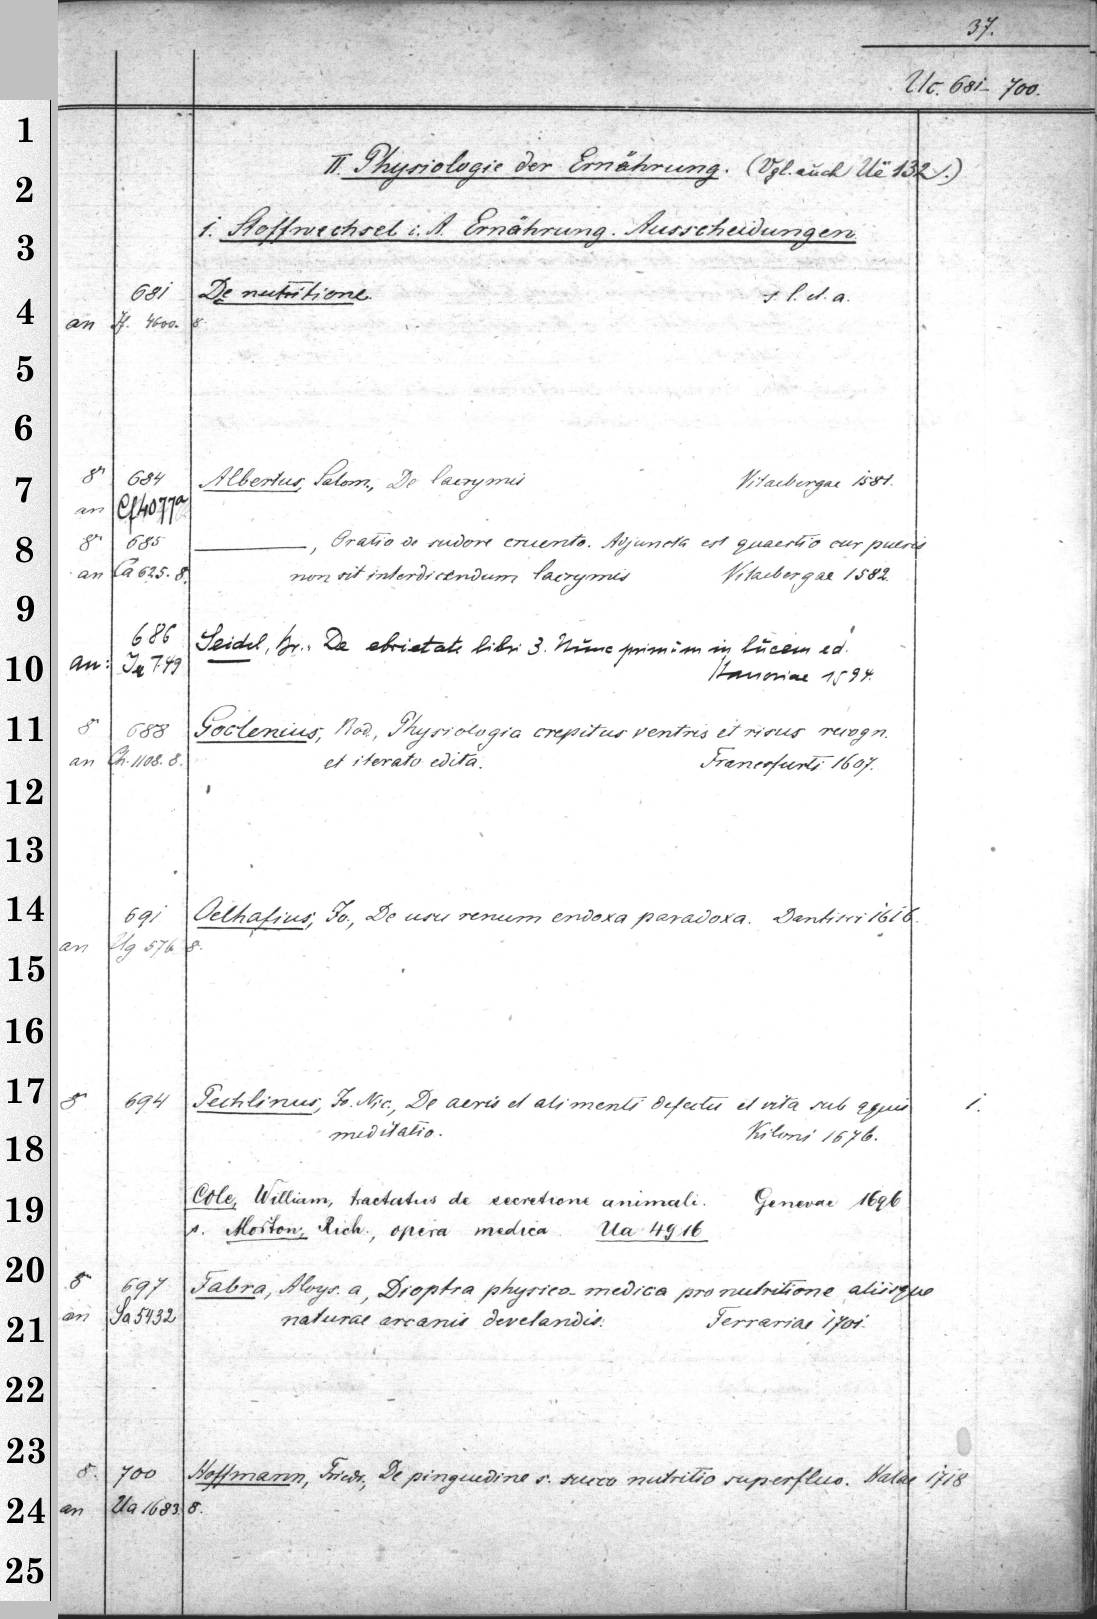 37.
Uc. 681-700.
II. Physiologie der Ernährung. (Vgl. auch Ue 132 f.)
1. Stoffwechsel i. A. Ernährung. Ausscheidungen
681 De nutritione. s. l. et. a.
an If. 4600. 8.
8° 684 Albertus, Salom., De lacrymis Vitaebergae 1581.
an Cf 4077a
8° 685 ———, Oratio de sudore cruento. Adjuncta est quaestio cur pueris
an Ca 625. 8. non sit interdicendum lacrymis Vitaebergae 1582
686 Seidel, Br., De ebrietate libri 3. Nunc primum in lucem ed.
an: 749 Hanoviae 1594.
8° 688 Goclenius, Rod., Physiologia crepitus ventris et risus recogn.
an Ch. 1108. 8. et iterato edita. Francofurti 1607.
691 Oelhafius, Jo., De usu renum endoxa paradoxa. Dantisci 1616.
an Ug 576 8.
8° 694 Pechlinus, Jo. Nic., De aeris et alimenti defectu et vita sub aquis 1.
meditatio. Kiloni 1676.
Cole, William, tractatus de secretione animali. Genevae 1696
s. Morton, Rich., opera medica Ua 4916
8° 697 Fabra, Aloys. a, Dioptra physico medica pro nutritione aliisque
an Sa 5432 naturae arcanis develandis. Ferrariae 1701.
8. 700 Hoffmann, Friedr., De pinguedine s. succo nutritio superfluo. Halae 1718
an Ua 1683. 8.
1
2
3
4
5
6
7
8
9
10
11
12
13
14
15
16
17
18
19
20
21
22
23
24
25